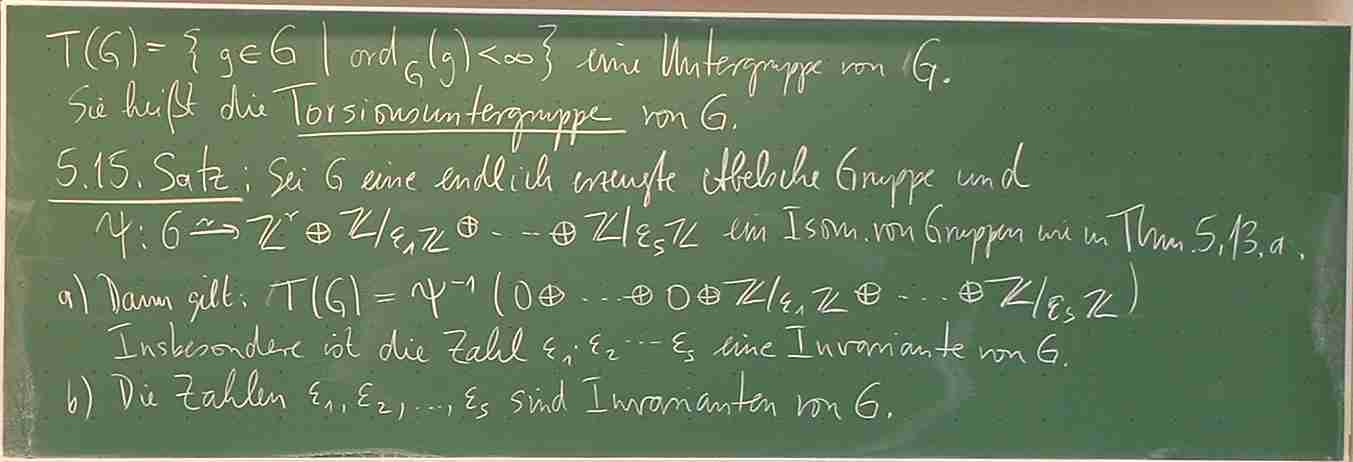 T(G) = { g ∈ G | ord_G(g) < ∞ } eine Untergruppe von G.
Sie heißt die Torsionsuntergruppe von G.
5.15. Satz: Sei G eine endlich erzeugte Abelsche Gruppe und
Ψ: G ⥲ ℤ^r ⊕ ℤ/ε₁ℤ ⊕ ... ⊕ ℤ/ε_sℤ ein Isom. von Gruppen wie in Thm. 5.13.a.
a) Dann gilt: T(G) = Ψ⁻¹ (0 ⊕ ... ⊕ 0 ⊕ ℤ/ε₁ℤ ⊕ ... ⊕ ℤ/ε_sℤ)
Insbesondere ist die Zahl ε₁·ε₂ ··· ε_s eine Invariante von G.
b) Die Zahlen ε₁, ε₂, ..., ε_s sind Invarianten von G.